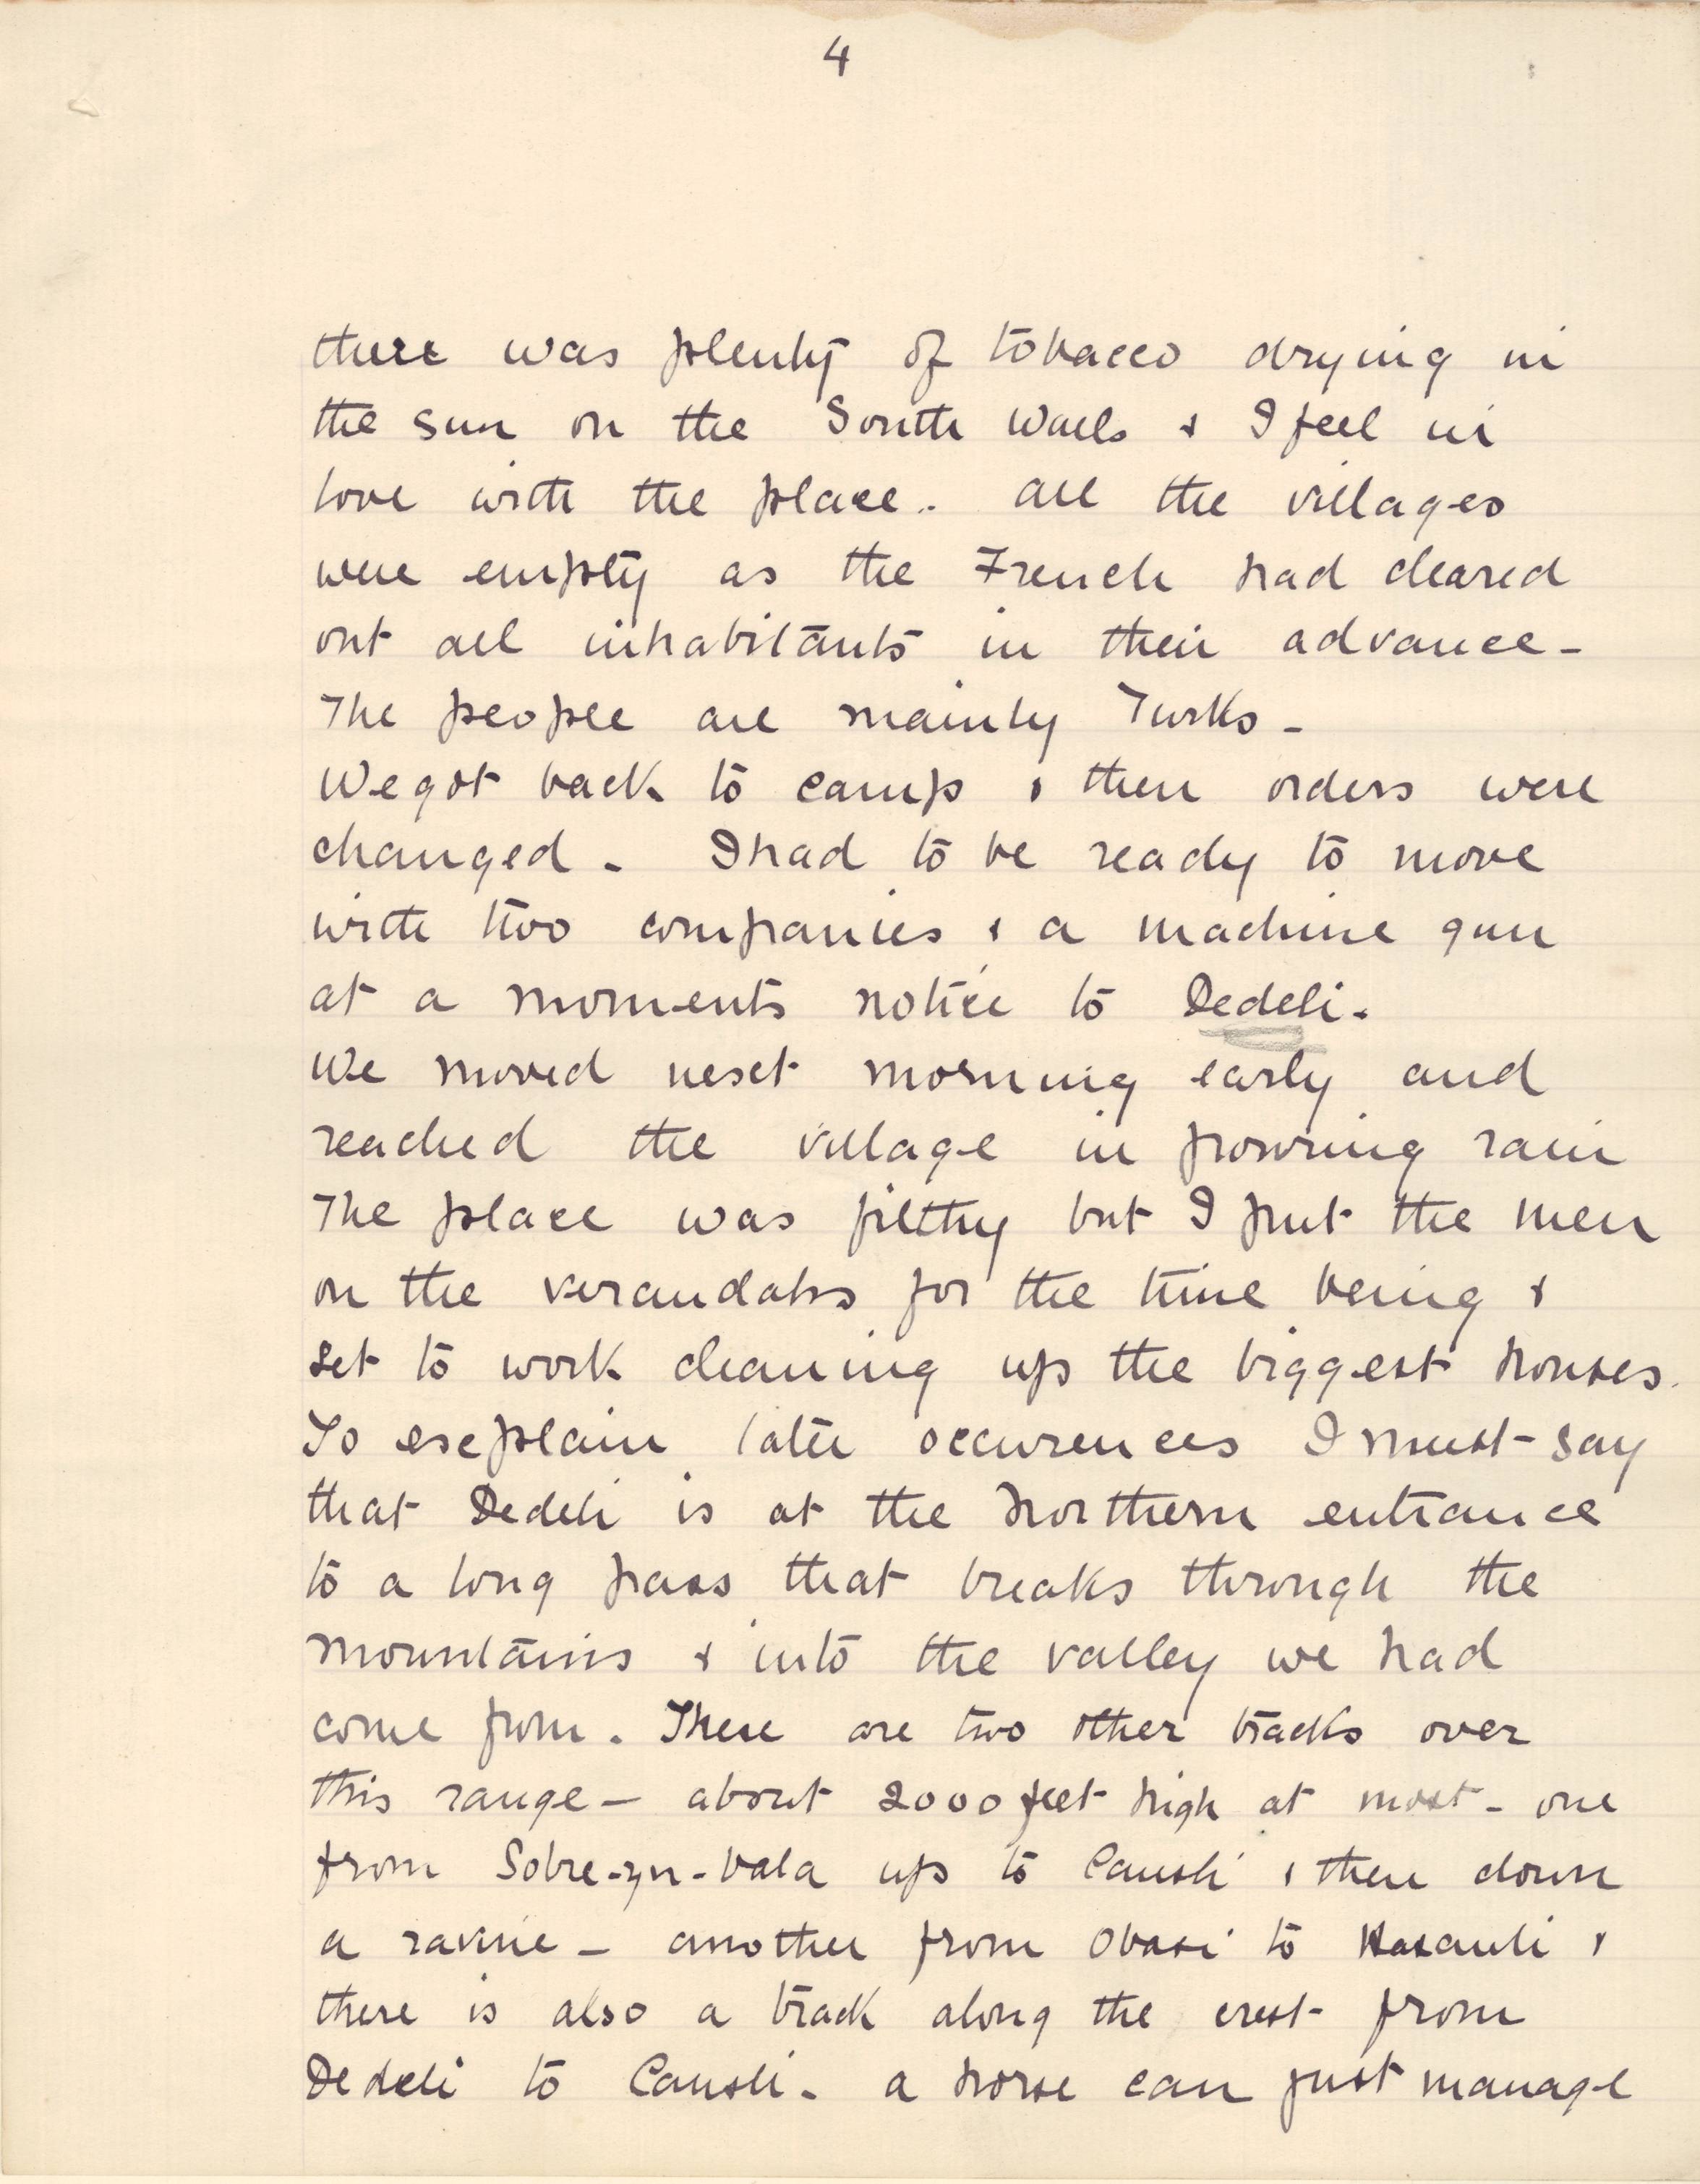 4
there was plenty of tobacco drying in
the sun on the South walls & I feel in
love with the place. all the villages
were empty as the French had cleared
out all inhabitants in their advance -
The people are mainly Turks -
We got back to camp & then orders were
changed - I had to be ready to move
with two companies & a machine gun
at a moments notice to Dedeli.
We moved next morning early and
reached the village in pouring rain
The place was filthy but I put the men
on the verandahs for the time being &
set to work cleaning up the biggest houses.
To explain later occurences I must say
that Dedeli is at the Northern entrance
to a long pass that breaks through the
mountains & into the valley we had
come from. There are two other tracks over
this range - about 2000 feet high at most - one
from Sobre-yn-bala up to Causli & then down
a ravine - another from Obasi to Hasanli &
there is also a track along the crest from
Dedeli to Causli - a horse can just manage